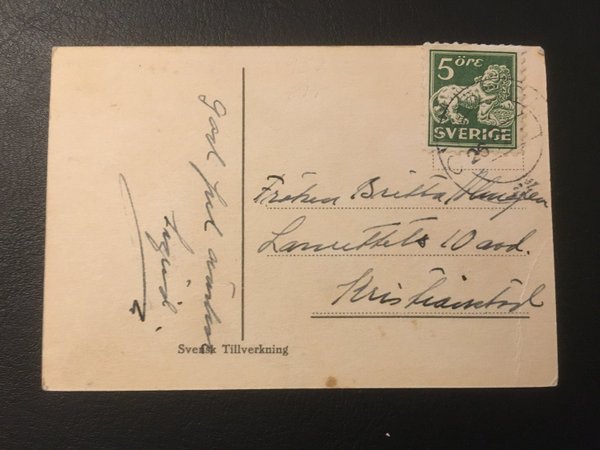 God Jul önskar
Sigrid
5 ÖRE
SVERIGE
26
Fröken Britta
Lasarettets 10 avd.
Kristianstad
Svensk Tillverkning